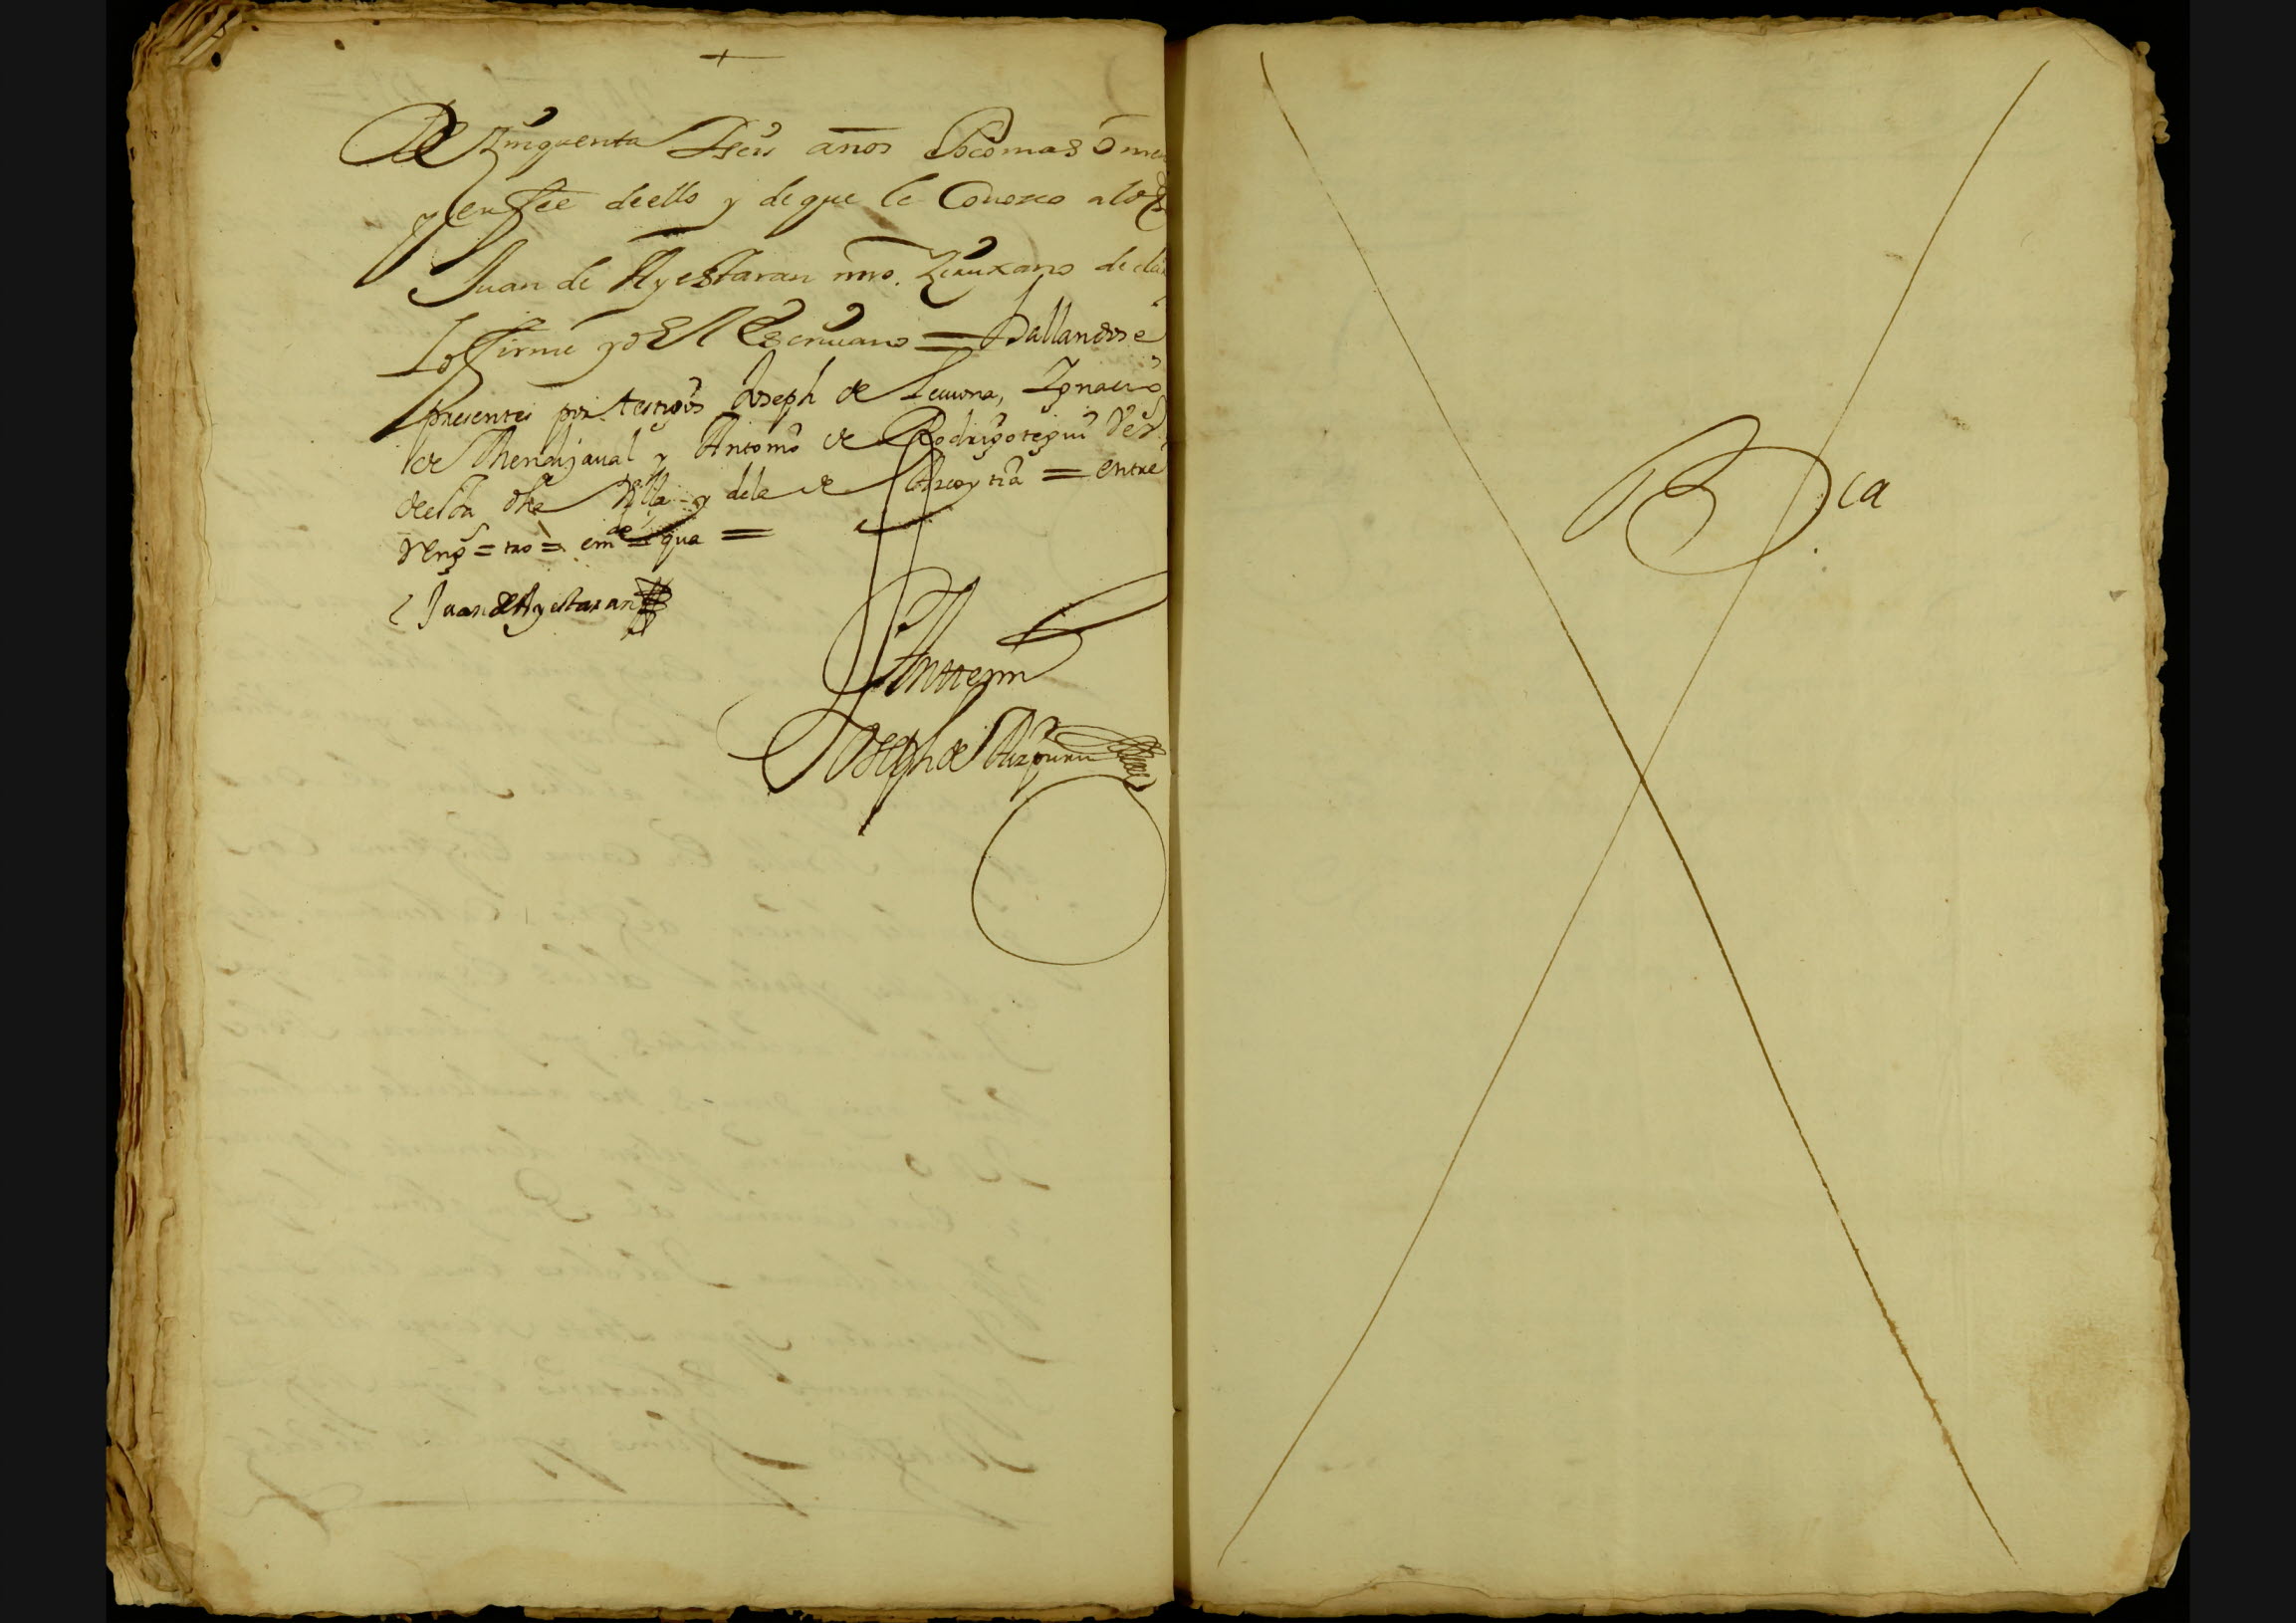 +
De Zinquenta y seis años Poco mas ô men
en fee de ello y de que le Conozco al
Juan de Ayestaran mro. Ziruxano decla
lo firmé yo El Escriuano = hallandose
presentes por testigos Joseph de Lecuona, Ignacio
de Mendizaual y Antonio de Rodrigotegui Vez
de esta dha Villa y de la de Azcoytia = entre
Reng = = em =
Juan de Ayestaran
Antte my
Joseph de Aizpuru
Bca